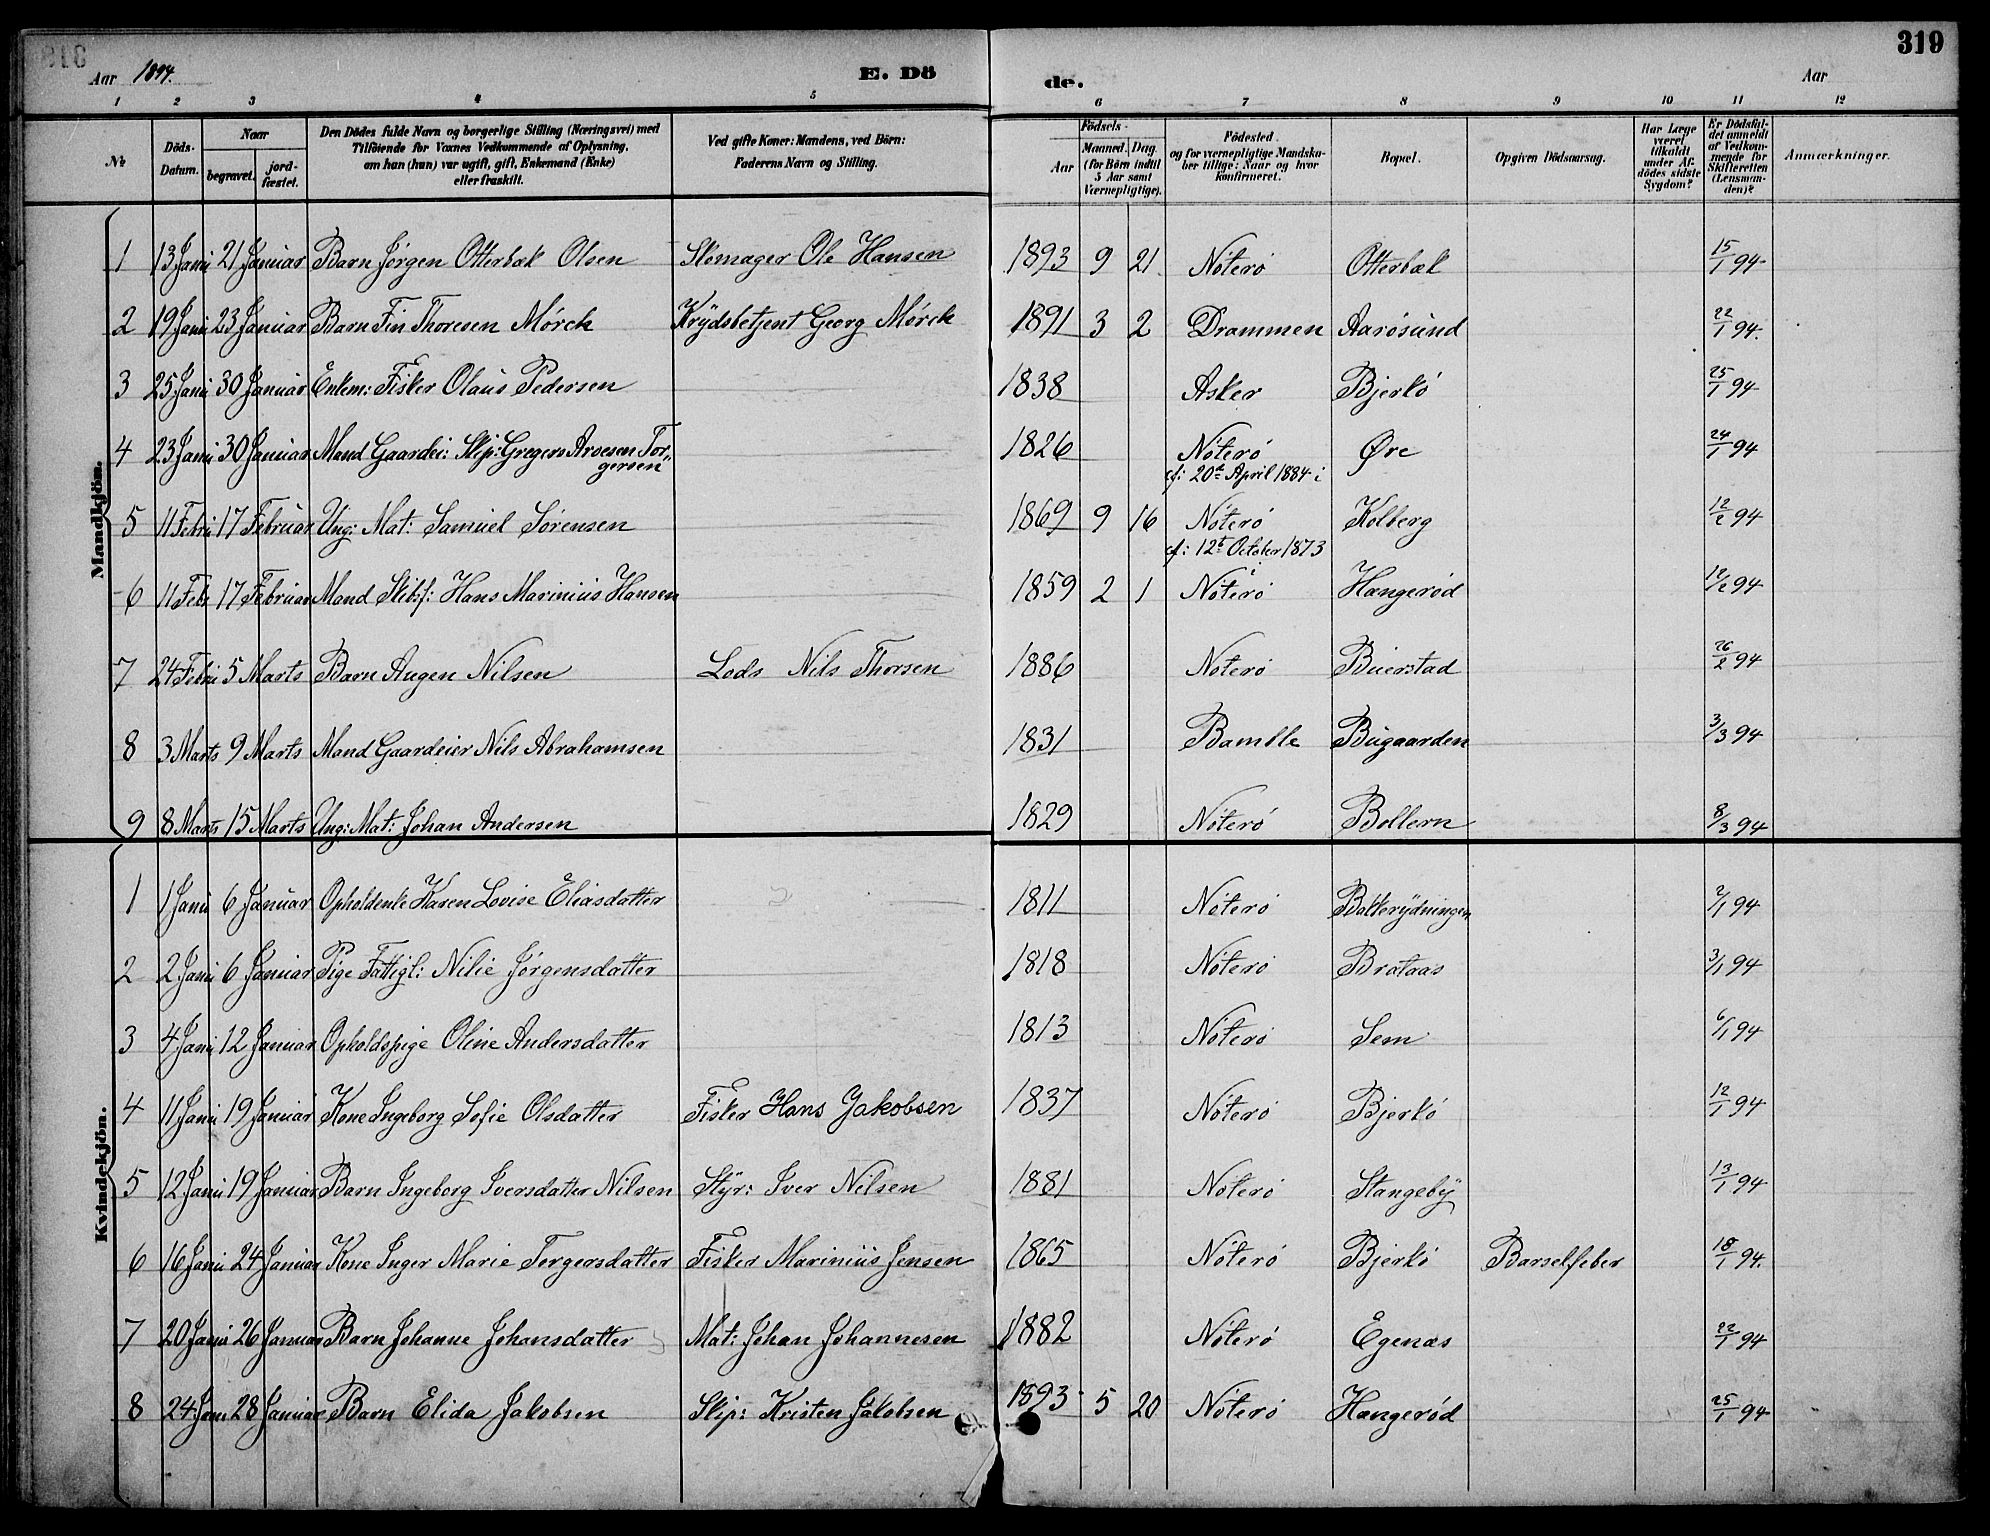 319
Aar 1894. E. Dö de. Aar
1 2 3 4 5 6 7 8 9 10 11 12
No Döds-Datum. Naar begravet. jord-fæstet. Den Dödes fulde Navn og borgerlige Stilling (Næringsvei) med Tilföiende for Voxnes Vedkommende af Oplysning, om han (hun) var ugift, gift, Enkemand (Enke) eller fraskilt. Ved gifte Koner: Mandens, ved Börn: Faderens Navn og Stilling. Födsels- Aar Maaned. Dag. (for Börn indtil 5 Aar samt Værnepligtige). Födested og for værnepligtige Mandskaber tillige: Naar og hvor konfirmeret. Bopæl. Opgiven Dödsaarsag. Har Læge været tilkaldt under Afdödes sidste Sygdom? Er Dödsfaldet anmeldt af Vedkommende for Skifteretten (Lensmanden)? Anmærkninger.
Mandkjön.
1 13 Janu 21 Januar Barn Jørgen Otterbæk Olsen Skomager Ole Hansen 1893 9 21 Nøterø Otterbæk 15/1 94
2 19 Janu 23 Januar Barn Fin Thoresen Mørch Krydsbetjent Georg Mørch 1891 3 2 Drammen Aarøsund 22/1 94.
3 25 Janu 30 Januar Enkem: Fisker Olaus Pedersen 1838 Asker Bjerkø 25/1 94
4 23 Janu 30 Januar Mand Gaardei: Skip: Gregers Aroesen Tor-
gersen 1826 Nøterø Øre 24/1 94
cf: 20de April 1884 i
5 11 Febru 17 Februar Ung: Mat: Samuel Sørensen 1869 9 16 Nøterø Kolberg 12/2 94
cf: 12te October 1873 i
6 11 Feb 17 Februar Mand Skibsf: Hans Marinius Hansen 1859 2 1 Nøterø Hængerød 12/2 94
7 24 Febru 5 Marts Barn Augen Nilsen Lods Nils Thorsen 1886 Nøterø Buerstad 26/2 94
8 3 Marts 9 Marts Mand Gaardeier Nils Abrahamsen 1831 Bamble Bugaarden 3/3 94
9 8 Marts 15 Marts Ung: Mat: Johan Andersen 1829 Nøterø Bollern 8/3 94
Kvindekjön.
1 1 Janu 6 Januar Opholdenke Karen Lovise Eliasdatter 1811 Nøterø Bakkerydningen 2/1 94
2 2 Janu 6 Januar Pige Fattigl: Nilie Jørgensdatter 1818 Nøterø Brataas 3/1 94
3 4 Janu 12 Januar Opholdspige Oline Andersdatter 1813 Nøterø Sem 6/1 94
4 11 Janu 19 Januar Kone Ingeborg Sofie Olsdatter Fisker Hans Jakobsen 1837 Nøterø Bjerkø 12/1 94
5 12 Janu 19 Januar Barn Ingeborg Iversdatter Nilsen Styr: Iver Nilsen 1881 Nøterø Stangeby 13/1 94
6 16 Janu 24 Januar Kone Inger Marie Torgersdatter Fisker Marinius Jensen 1865 Nøterø Bjerkø Barselfeber 18/1 94.
7 20 Janu 26 Januar Barn Johanne Johansdatter Mat: Johan Johannesen 1882 Nøterø Egenæs 22/1 94
8 24 Janu 28 Januar Barn Elida Jakobsen Skip: Kristen Jakobsen 1893 5 20 Nøterø Hængerød 25/1 94